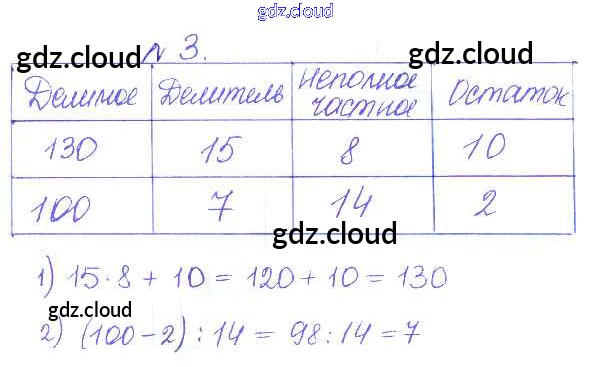 gdz.cloud
№ 3.
gdz.cloud gdz.cloud
Делимое Делитель Неполное частное Остаток
130 15 8 10
100 7 14 2
gdz.cloud
1) 15·8 + 10 = 120 + 10 = 130
gdz.cloud
2) (100 - 2) : 14 = 98 : 14 = 7
gdz.cloud